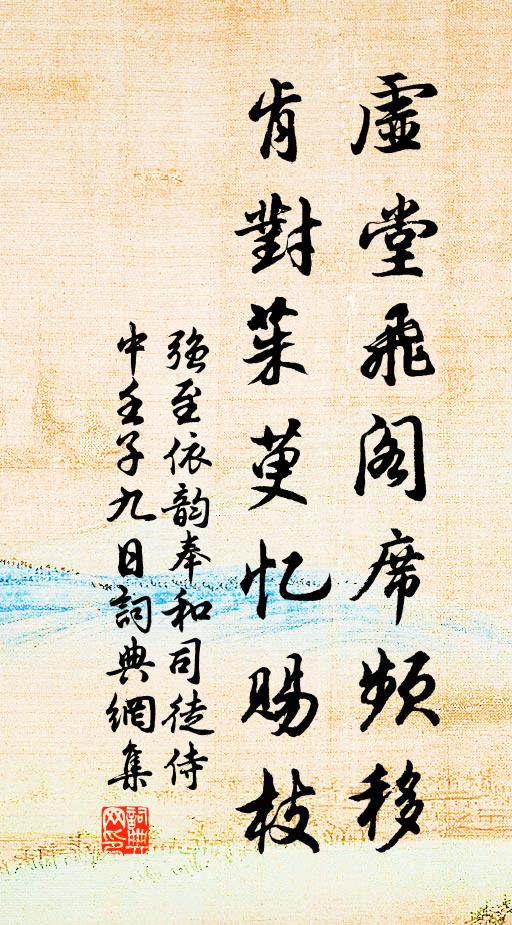 虛堂飛阁席頻移
肯對茱萸忆賜枝
強至依韵奉和司徒侍
中壬子九日詞典網集
詞典
网